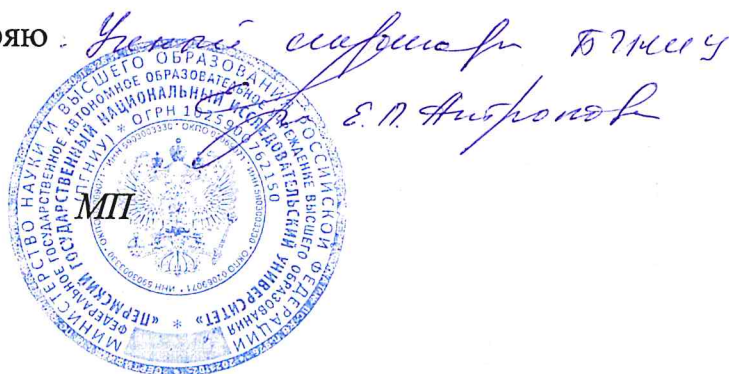 ряю Ученый секретарь ПГНИУ
Е.П. Антропова
МП
МИНИСТЕРСТВО НАУКИ И ВЫСШЕГО ОБРАЗОВАНИЯ РОССИЙСКОЙ ФЕДЕРАЦИИ
ФЕДЕРАЛЬНОЕ ГОСУДАРСТВЕННОЕ АВТОНОМНОЕ ОБРАЗОВАТЕЛЬНОЕ УЧРЕЖДЕНИЕ ВЫСШЕГО ОБРАЗОВАНИЯ
«ПЕРМСКИЙ ГОСУДАРСТВЕННЫЙ НАЦИОНАЛЬНЫЙ ИССЛЕДОВАТЕЛЬСКИЙ УНИВЕРСИТЕТ»
(ПГНИУ) * ОГРН 1025900762150
ОКПО 02069071 * ИНН 5903003330